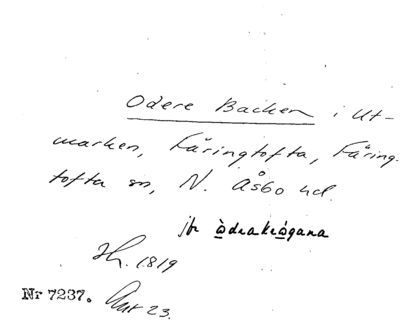 Odere Backen i Ut-
marken, Färingtofta, Färing-
tofta sn, N. Åsbo hd.
jfr òdrakrògana
1819
Nr 7237. 23.